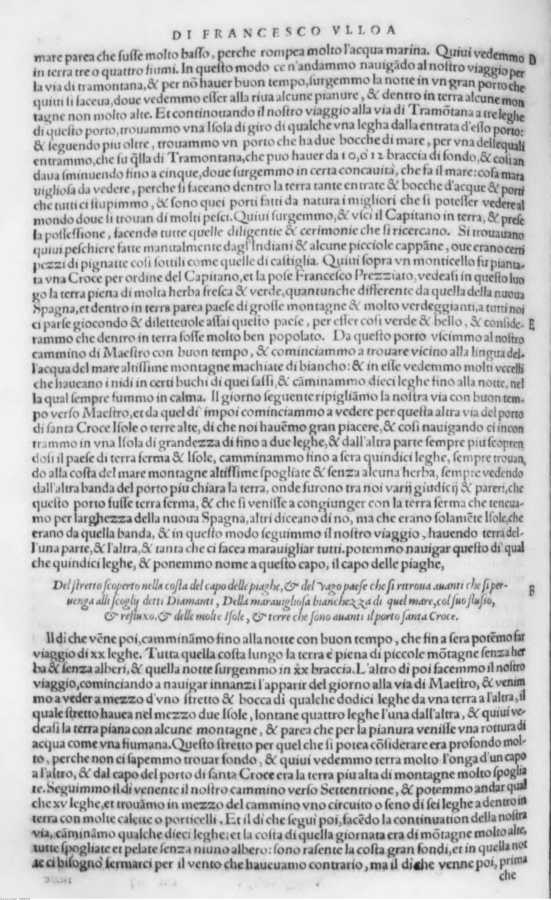 DI FRANCESCO VLLOA
mare parea che fusse molto basso, perche rompea molto l'acqua marina. Quiui vedemmo D
in terra tre o quattro fiumi. In questo modo ce n'andammo nauigãdo al nostro viaggio per
la via di tramontana,& per nõ hauer buon tempo, surgemmo la notte in vn gran porto che
quiui si faceua, doue vedemmo esser alla riua alcune pianure, & dentro in terra alcune mon
tagne non molto alte. Et continouando il nostro viaggio alla via di Tramõtana a tre leghe
di questo porto, trouammo vna Isola di giro di qualche vna legha dalla entrata d'esso porto:
& seguendo piu oltre, trouammo vn porto che ha due bocche di mare, per vna delle quali
entrammo, che fu q̃lla di Tramontana, che puo hauer da 10,o 12 braccia di fondo,& cosi an
daua sminuendo fino a cinque, doue surgemmo in certa concauità, che fa il mare: cosa mara
uigliosa da vedere, perche si faceano dentro la terra tante entrate & bocche d'acque & porti
che tutti ci stupimmo, & sono quei porti fatti da natura i migliori che si potesser vedere al
mondo doue si trouan di molti pesci. Quiui surgemmo,& vscì il Capitano in terra, & prese
la possessione, facendo tutte quelle diligentie & cerimonie che si ricercano. Si trouarono
quiui peschiere fatte manualmente dagl'Indiani & alcune picciole cappãne, oue erano certi
pezzi di pignatte cosi sottili come quelle di castiglia. Quiui sopra vn monticello fu pianta-
ta vna Croce per ordine del Capitano, et la pose Francesco Prezziato, vedeasi in questo luo
go la terra piena di molta herba fresca & verde, quantunche differente da quella della nuoua
Spagna, et dentro in terra parea paese di grosse montagne & molto verdeggianti, a tutti noi
ci parse giocondo & diletteuole assai questo paese, per esser cosi verde & bello, & conside- E
rammo che dentro in terra fosse molto ben popolato. Da questo porto vscimmo al nostro
cammino di Maestro con buon tempo, & cominciammo a trouare vicino alla lingua del-
l'acqua del mare altissime montagne machiate di biancho: & in esse vedemmo molti vccelli
che haueano i nidi in certi buchi di quei sassi, & cãminammo dieci leghe fino alla notte, nel
la qual sempre fummo in calma. Il giorno seguente ripigliãmo la nostra via con buon tem-
po verso Maestro, et da quel dì impoi cominciammo a vedere per questa altra via del porto
di santa Croce Isole o terre alte, di che noi hauẽmo gran piacere, & così nauigando ci incon
trammo in vna Isola di grandezza di fino a due leghe, & dall'altra parte sempre piu scopren
dosi il paese di terra ferma & Isole, camminammo fino a sera quindici leghe, sempre trouan
do alla costa del mare montagne altissime spogliate & senza alcuna herba, sempre vedendo
dall'altra banda del porto piu chiara la terra, onde furono tra noi varij giudicij & pareri, che
questo porto fusse terra ferma, & che si venisse a congiunger con la terra ferma che teneua-
mo per larghezza della nuoua Spagna, altri diceano di no, ma che erano solamẽte Isole, che
erano da quella banda, & in questo modo seguimmo il nostro viaggio, hauendo terra del-
l'una parte,& l'altra, & tanta che ci facea marauigliar tutti. potemmo nauigar questo dì qual
che quindici leghe, & ponemmo nome a questo capo, il capo delle piaghe,
Del stretto scoperto nella costa del capo delle piaghe, & del vago paese che si ritroua auanti che si per- F
uenga alli scogli detti Diamanti, Della marauigliosa bianchezza di quel mare, col suo flusso,
& reflusso, & delle molte Isole, & terre che sono auanti il porto santa Croce.
Il dì che vẽne poi, camminãmo fino alla notte con buon tempo, che fin a sera potẽmo far
viaggio di xx leghe. Tutta quella costa lungo la terra è piena di piccole mõtagne senza her
ba & senza alberi, & quella notte surgemmo in xx braccia. L'altro dì poi facemmo il nostro
viaggio, cominciando a nauigar innanzi l'apparir del giorno alla via di Maestro, & venim
mo a veder a mezzo d'vno stretto & bocca di qualche dodici leghe da vna terra a l'altra, il
quale stretto hauea nel mezzo due Isole, lontane quattro leghe l'una dall'altra, & quiui ve-
deasi la terra piana con alcune montagne, & parea che per la pianura venisse vna rottura di
acqua come vna fiumana. Questo stretto per quel che si potea cõsiderare era profondo mol-
to, perche non ci sapemmo trouar fondo, & quiui vedemmo terra molto l'onga d'un capo
a l'altro, & dal capo del porto di santa Croce era la terra piu alta di montagne molto spoglia
te. Seguimmo il dì venente il nostro cammino verso Settentrione, & potemmo andar qual
che xv leghe, et trouãmo in mezzo del cammino vno circuito o seno di sei leghe a dentro in
terra con molte calette o porticelli. Et il dì che seguì poi, facẽdo la continuation della nostra
via, cãminãmo qualche dieci leghe: et la costa di quella giornata era di mõtagne molto alte,
tutte spogliate et pelate senza niuno albero: sono rasente la costa gran fondi, et in quella not
te ci bisognò fermarci per il vento che haueuamo contrario, ma il dì che venne poi, prima
che